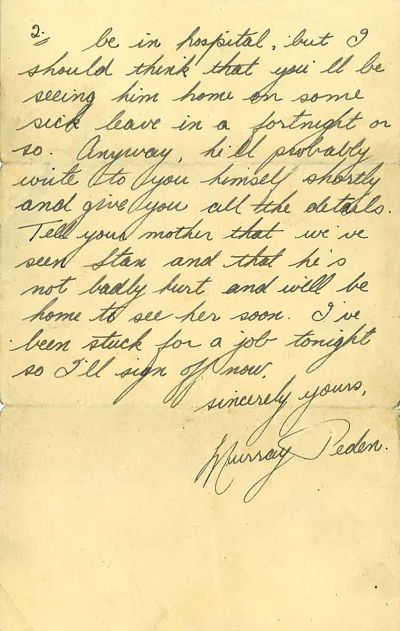 2.
be in hospital, but I
should think that you'll be
seeing him home on some
sick leave in a fortnight or
so. Anyway, he'll probably
write to you himself shortly
and give you all the details.
Tell your mother that we've
seen Stan and that he's
not badly hurt and will be
home to see her soon. I've
been stuck for a job tonight
so I'll sign off now.
sincerely yours,
Murray Peden.